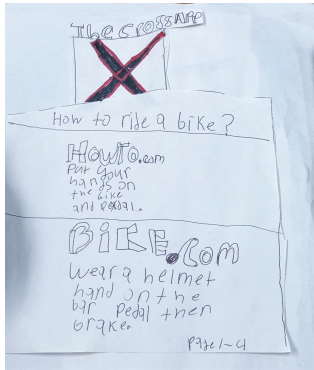 The Cross APP
How to ride a bike?
HowTo.com
Put your
hands on
the bike
and pedal.
BiKE.Com
Wear a helmet
hand on the
bar Pedal then
brake.
Page 1-4